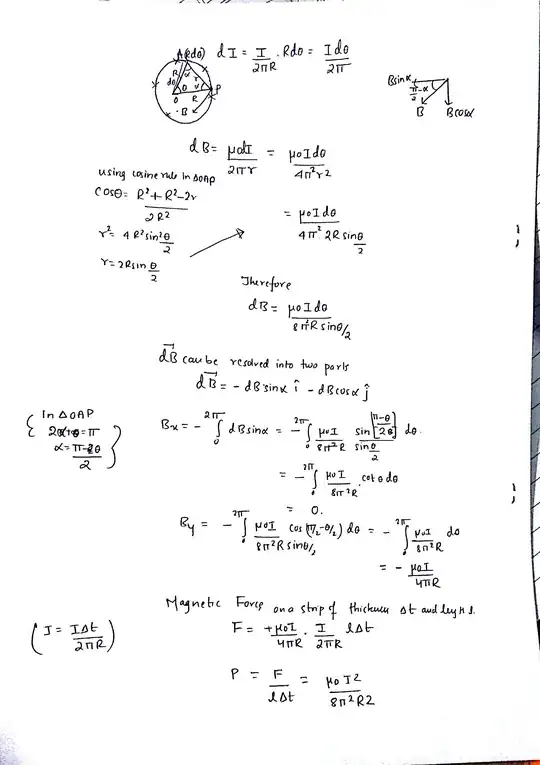 A(Rdθ) dI = I/2πR . Rdθ = Idθ/2π
R dθ α r θ α P
O R B
Bsinα π/2-α B Bcosα
dB = μ0dI/2πr = μ0Idθ/4π²r2
using cosine rule in ΔOAP
cosθ = R²+R²-2r/2R²
r² = 4R²sin²θ/2
= μ0Idθ/4π² 2R sinθ/2
r = 2Rsinθ/2
Therefore
dB = μ0Idθ/8π²R sinθ/2
dB can be resolved into two parts
dB = - dB sinα î - dBcosα ĵ
In ΔOAP
α = π-θ/2
Bx = - ∫0^2π dB sinα = - ∫0^2π μ0I/8π²R sin[π-θ/2]/sinθ/2 dθ.
= - ∫0^2π μ0I/8π²R . cotθdθ
= 0.
By = - ∫0^2π μ0I/8π²R sinθ/2 cos(π/2-θ/2) dθ = - ∫0^2π μ0I/8π²R dθ
= - μ0I/4πR
Magnetic Force on a strip of thickness Δt and length l.
(J = IΔt/2πR)
F = +μ0I/4πR . I/2πR lΔt
P = F/lΔt = μ0I2/8π²R2